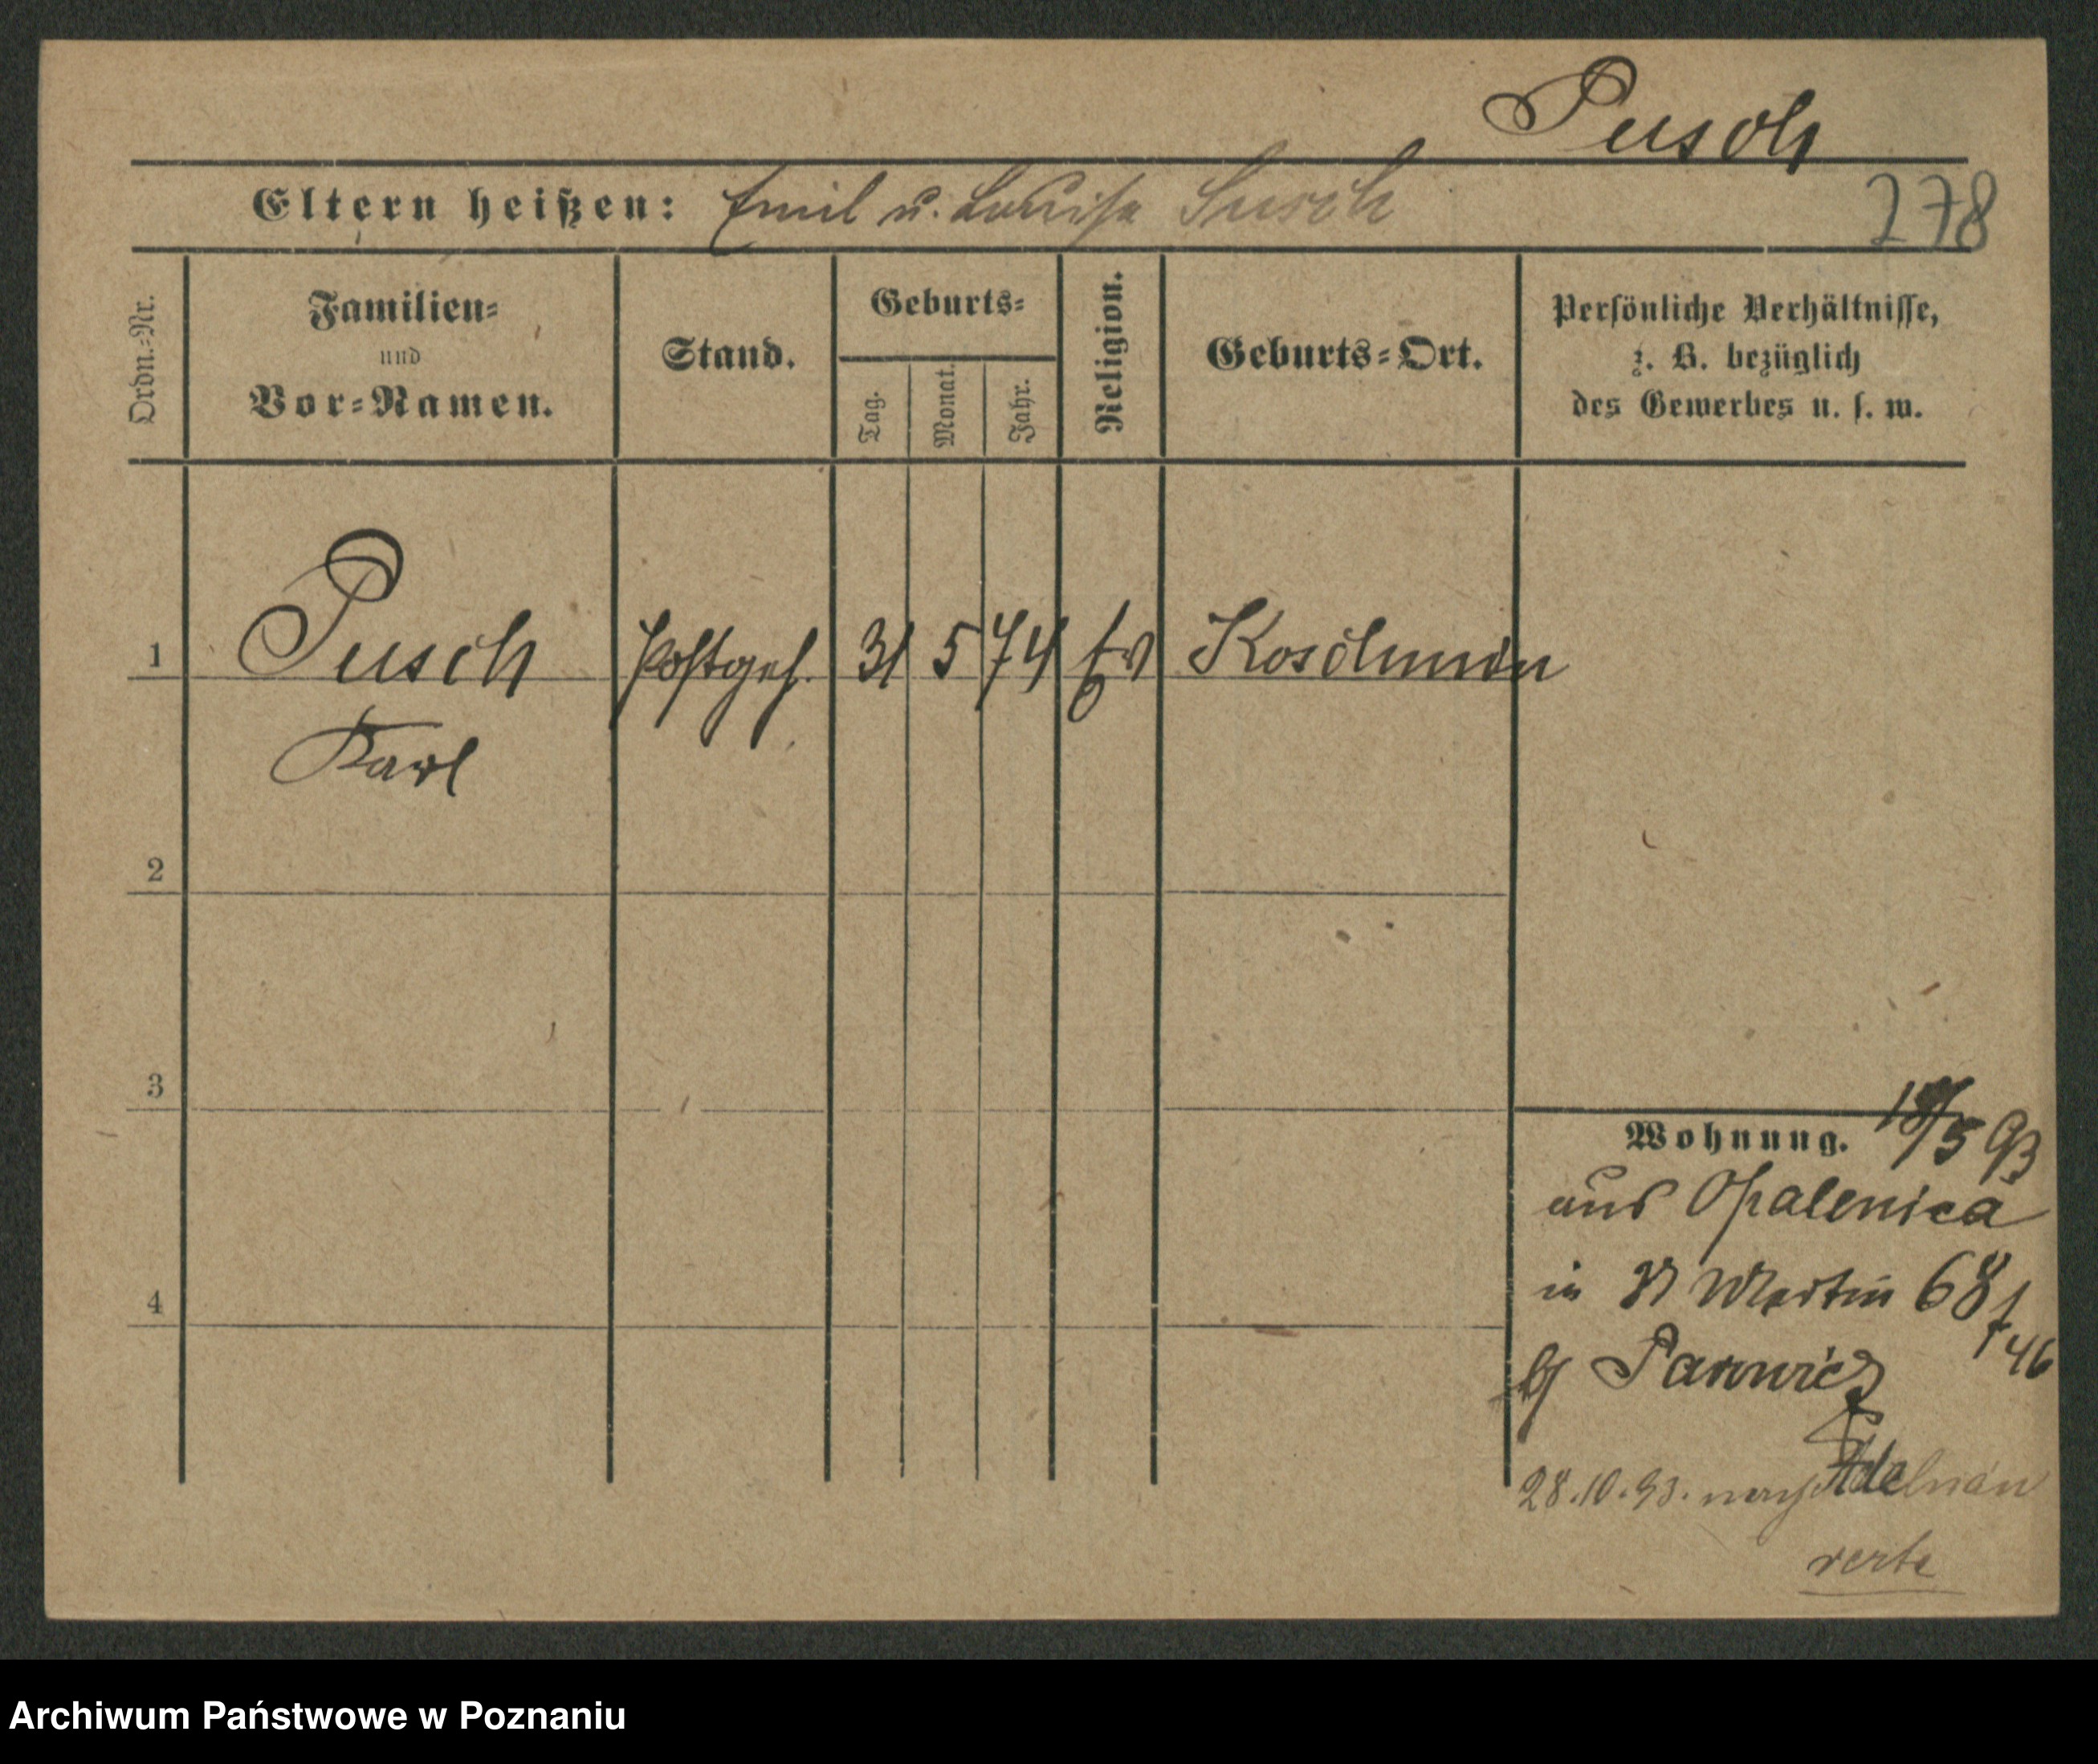 Pusch
Eltern heißen: Emil u. Louise Pusch
278
Ordn.-Nr.
Familien-
und
Vor-Namen.
Stand.
Geburts-
Tag.
Monat.
Jahr.
Religion.
Geburts-Ort.
Persönliche Verhältnisse,
z. B. bezüglich
des Gewerbes u. s. w.
1 Pusch Postgeh. 31 5 74 Ev Koschmin
Karl
2
3
4
Wohnung. 18/5 93
aus Opalenica
in St Martin 68
46
bei
28.10.93. nach Adelnau
verte
Archiwum Państwowe w Poznaniu